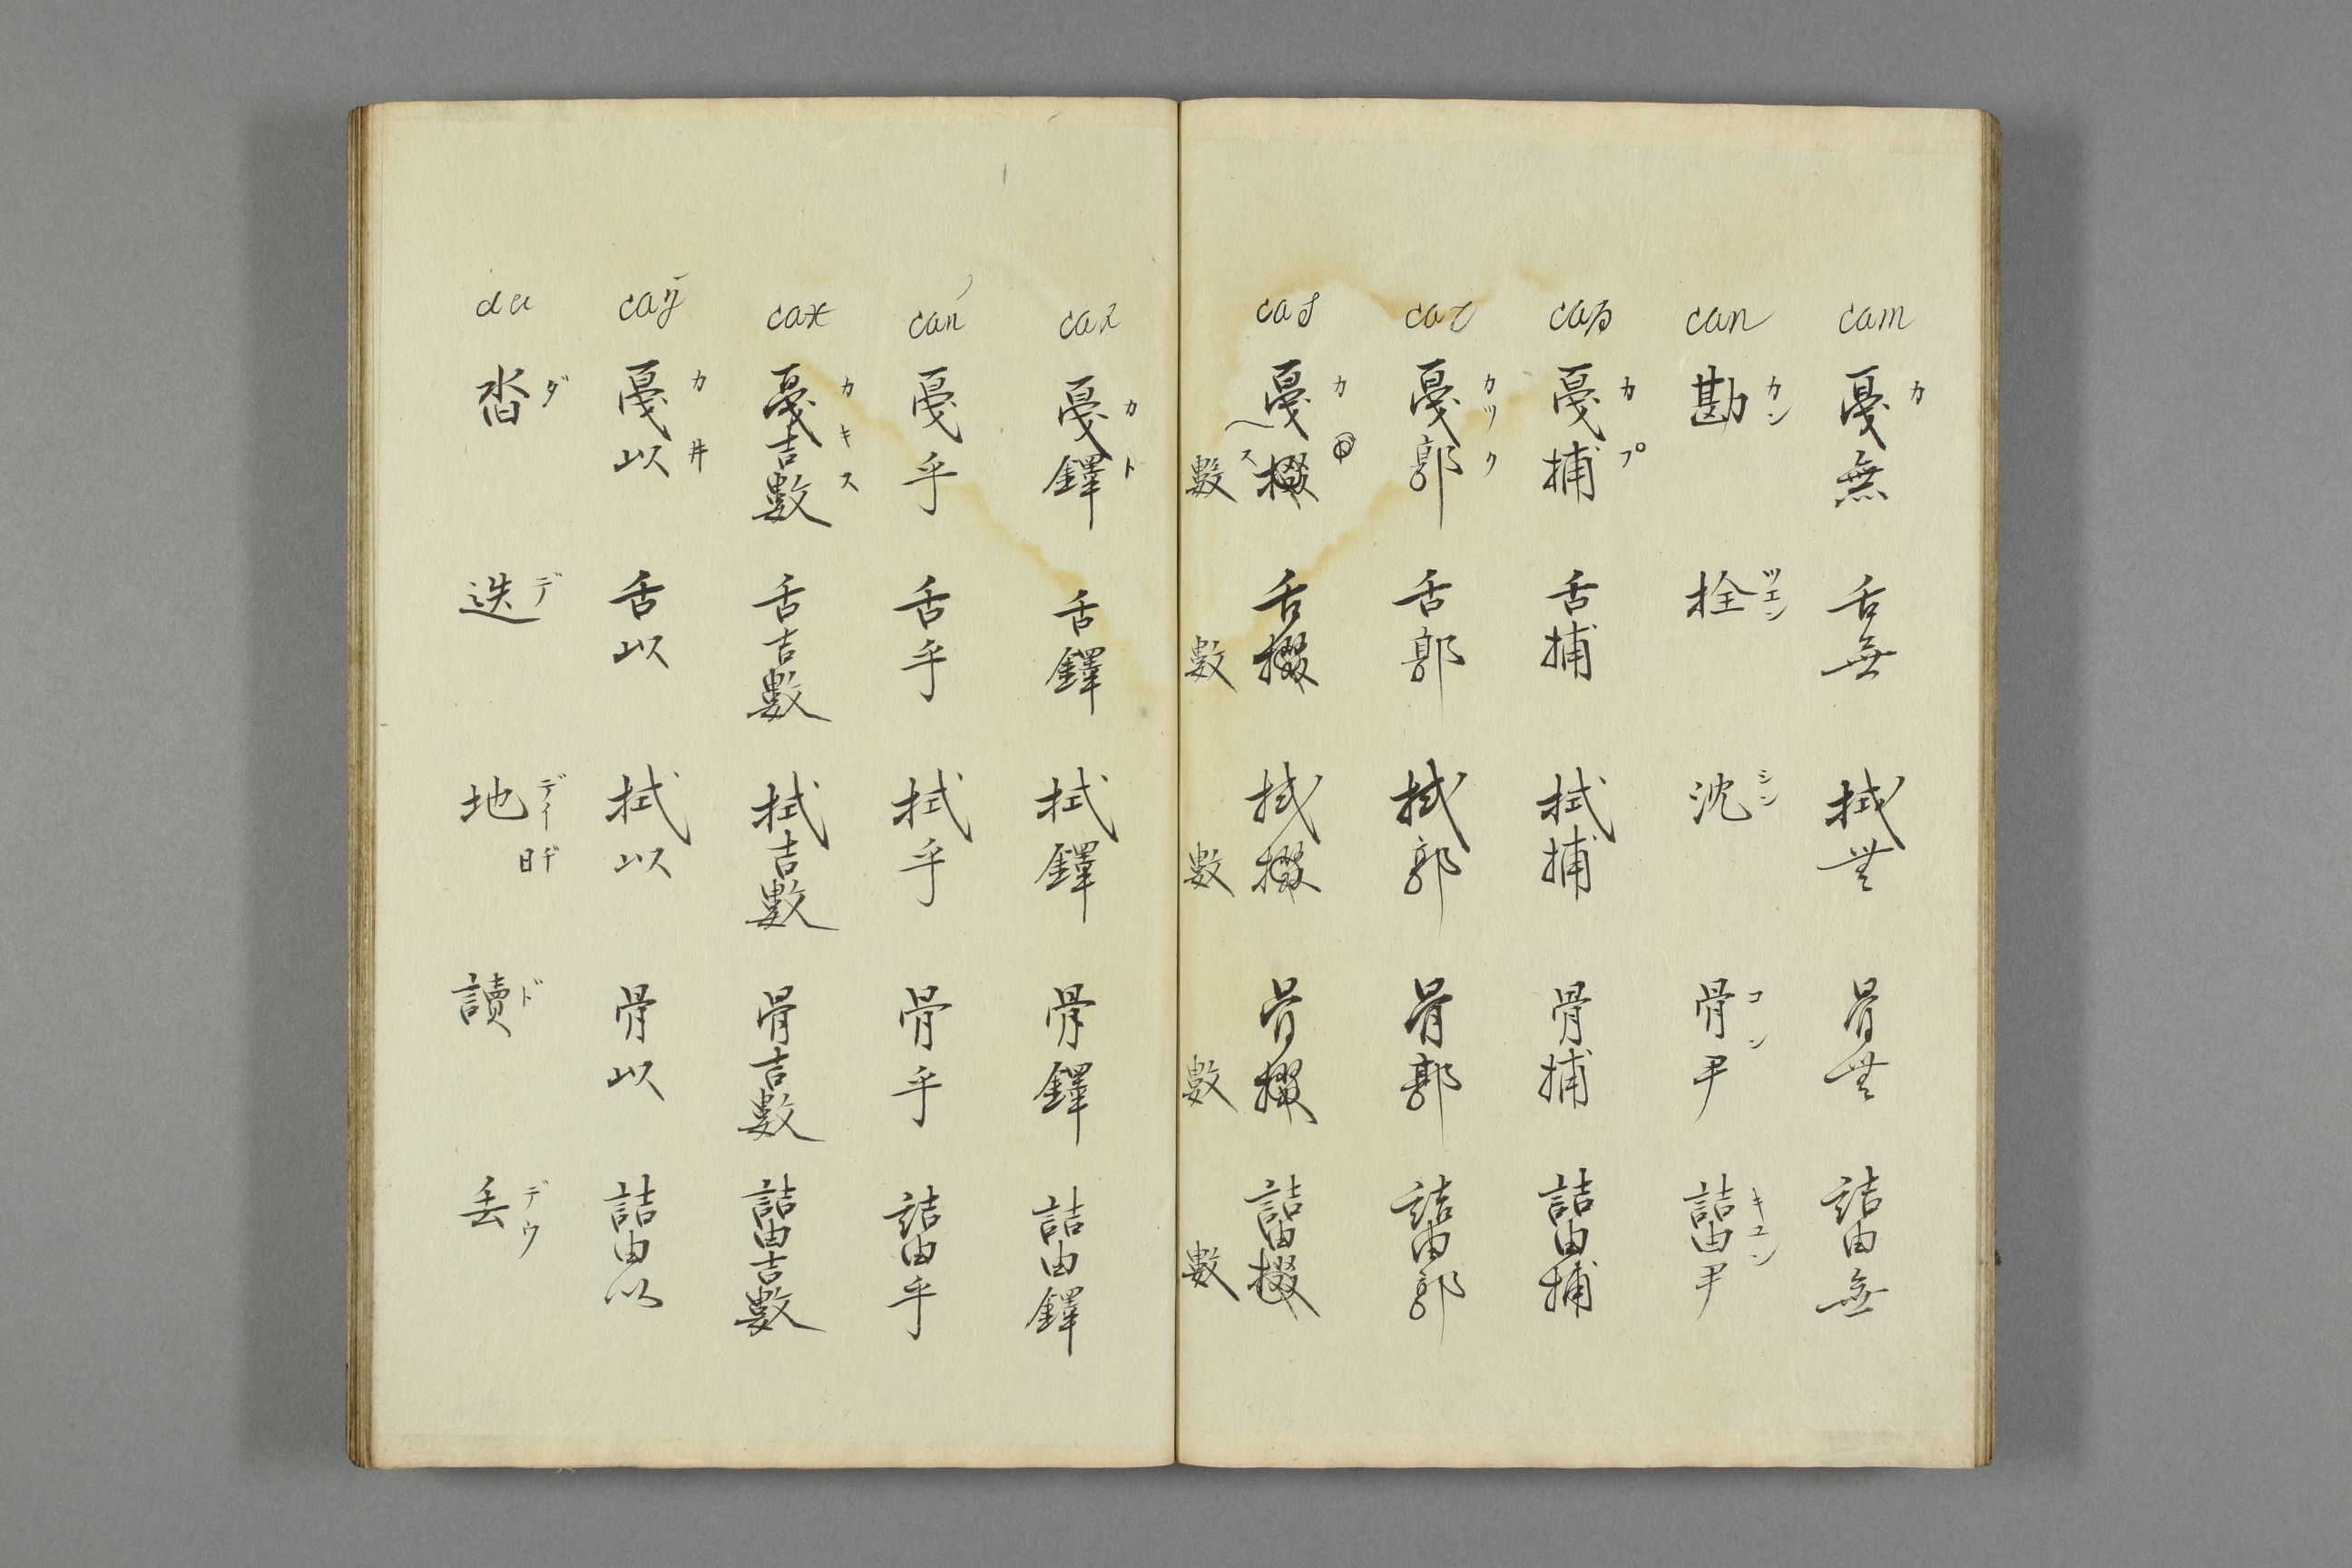 cam 戛カ無 舌無 拭無 骨無 詰由無
can 勘カン 拴ツエン 沈シン 骨尹コン 詰由尹キユン
cap 戛捕カプ 舌捕 拭捕 骨捕 詰由捕
戛郭カツク 舌郭 拭郭 骨郭 詰由郭
cas 戛カ掇 舌掇 拭掇 骨掇 詰由掇
數ス 數 數 數 數
戛鐸カト 舌鐸 拭鐸 骨鐸 詰由鐸
戛乎 舌乎 拭乎 骨乎 詰由乎
cax 戛吉數カキス 舌吉數 拭吉數 骨吉數 詰由吉數
caÿ 戛以カ井 舌以 拭以 骨以 詰由以
da 沓ダ 迭デ 地デイ 日ヂ 讀ド 丢デウ